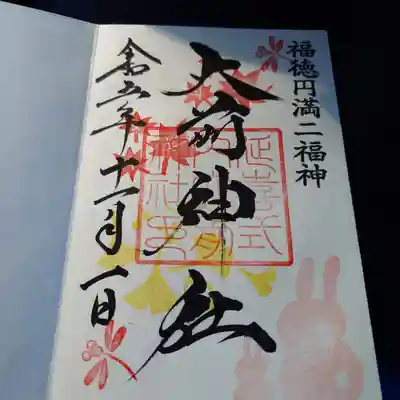 福徳円満二福神
大前神社
延喜式
内大前
神社玉
令和五年十一月一日